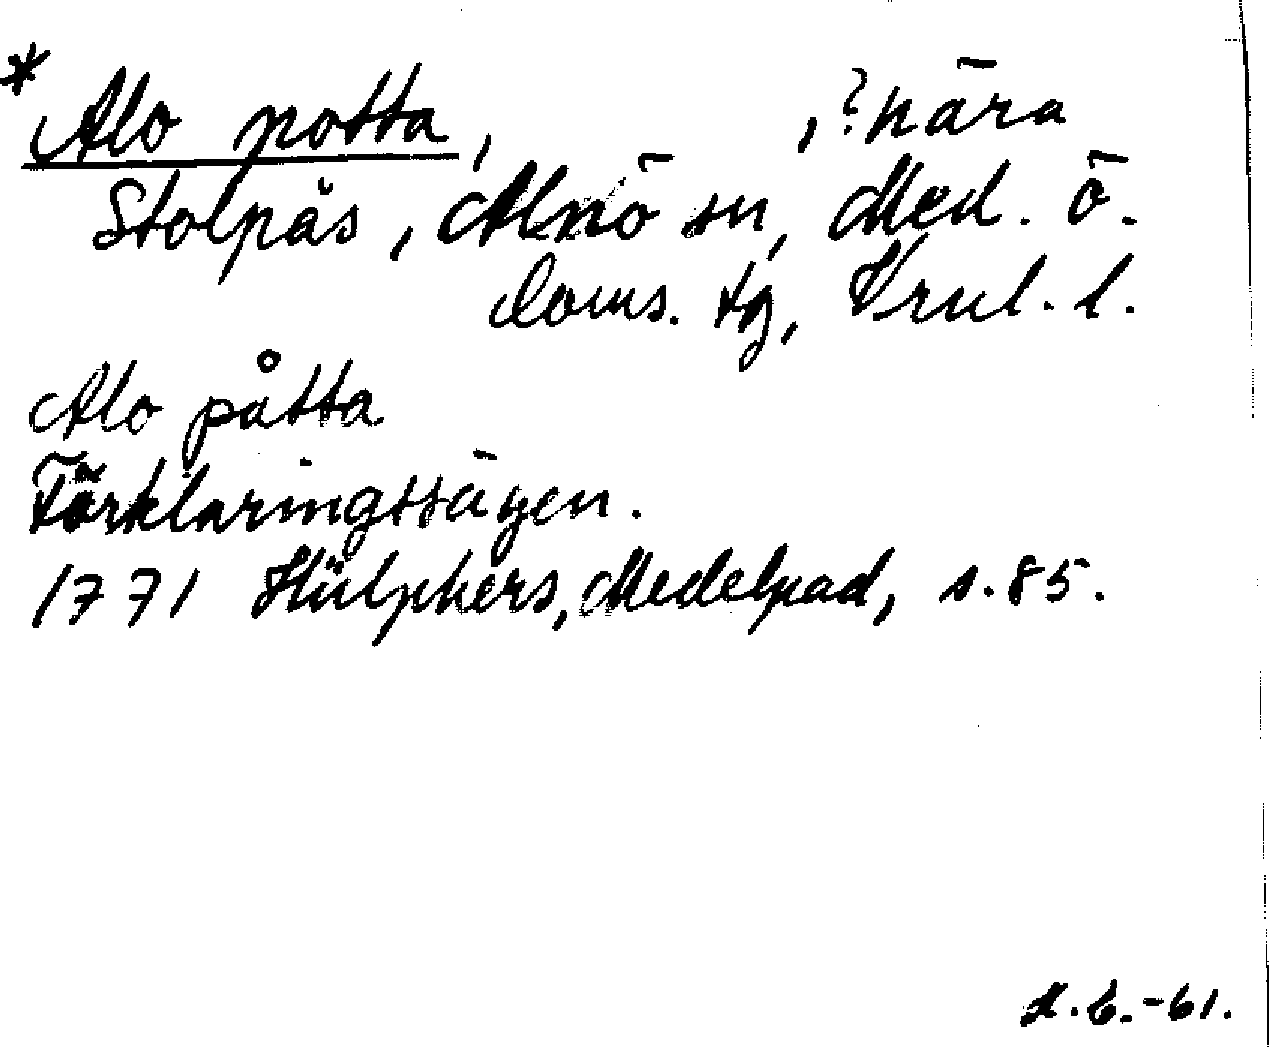 * Alo potta, , ? nära
Stolpås, Alnö sn, Med. ö.
doms. tg, Vrnl. l.
Alo påtta
Förklaringssägen.
1771 Hülphers, Medelpad, s. 85.
-61.